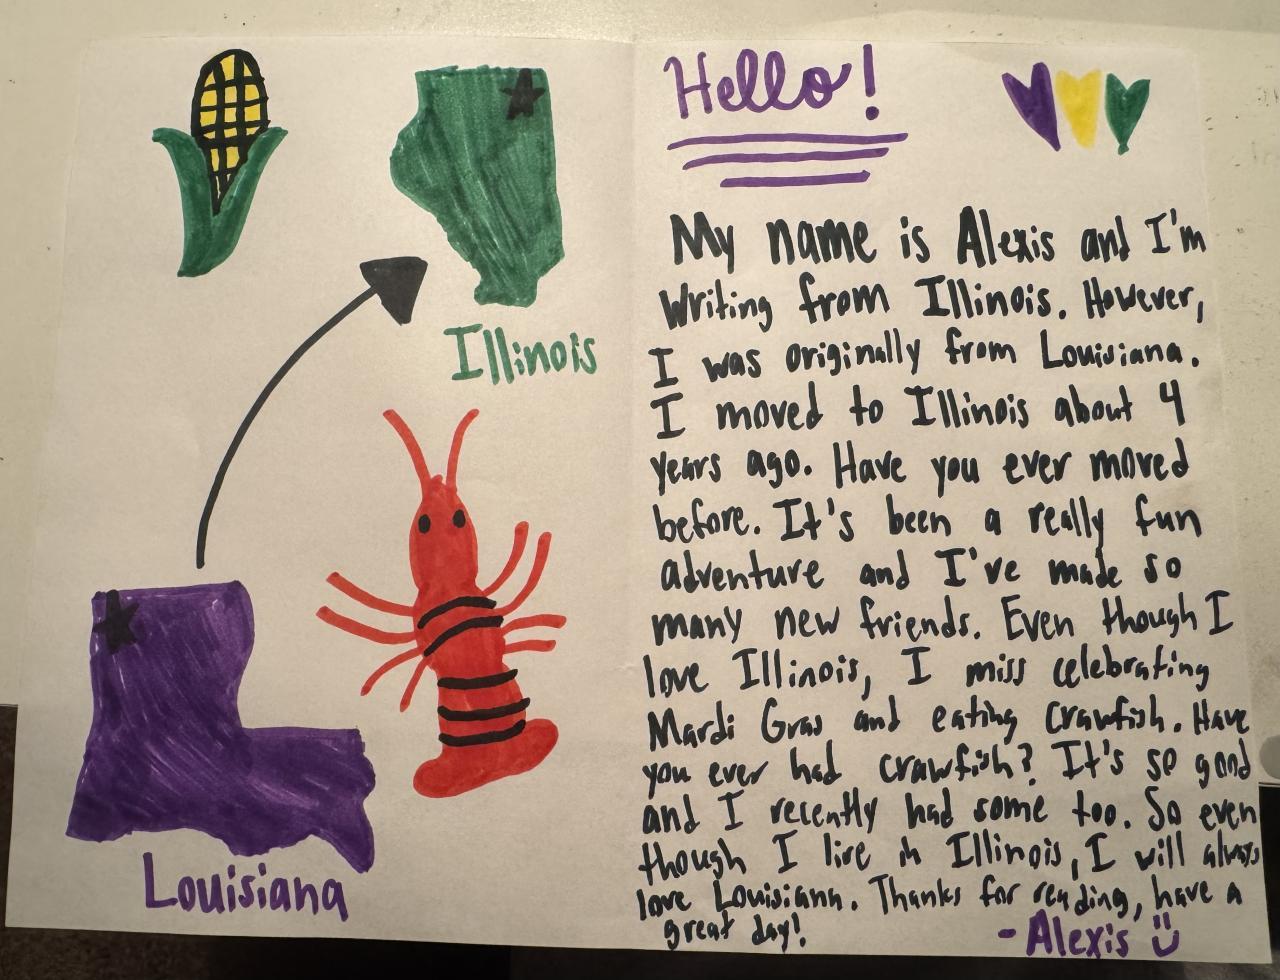 Illinois
Louisiana
Hello!
My name is Alexis and I'm
Writing from Illinois. However,
I was originally from Louisiana.
I moved to Illinois about 4
years ago. Have you ever moved
before. It's been a really fun
adventure and I've made so
many new friends. Even though I
love Illinois, I miss celebrating
Mardi Gras and eating crawfish. Have
you ever had crawfish? It's so good
and I recently had some too. So even
though I live in Illinois, I will always
love Louisiana. Thanks for reading, have a
great day!
- Alexis